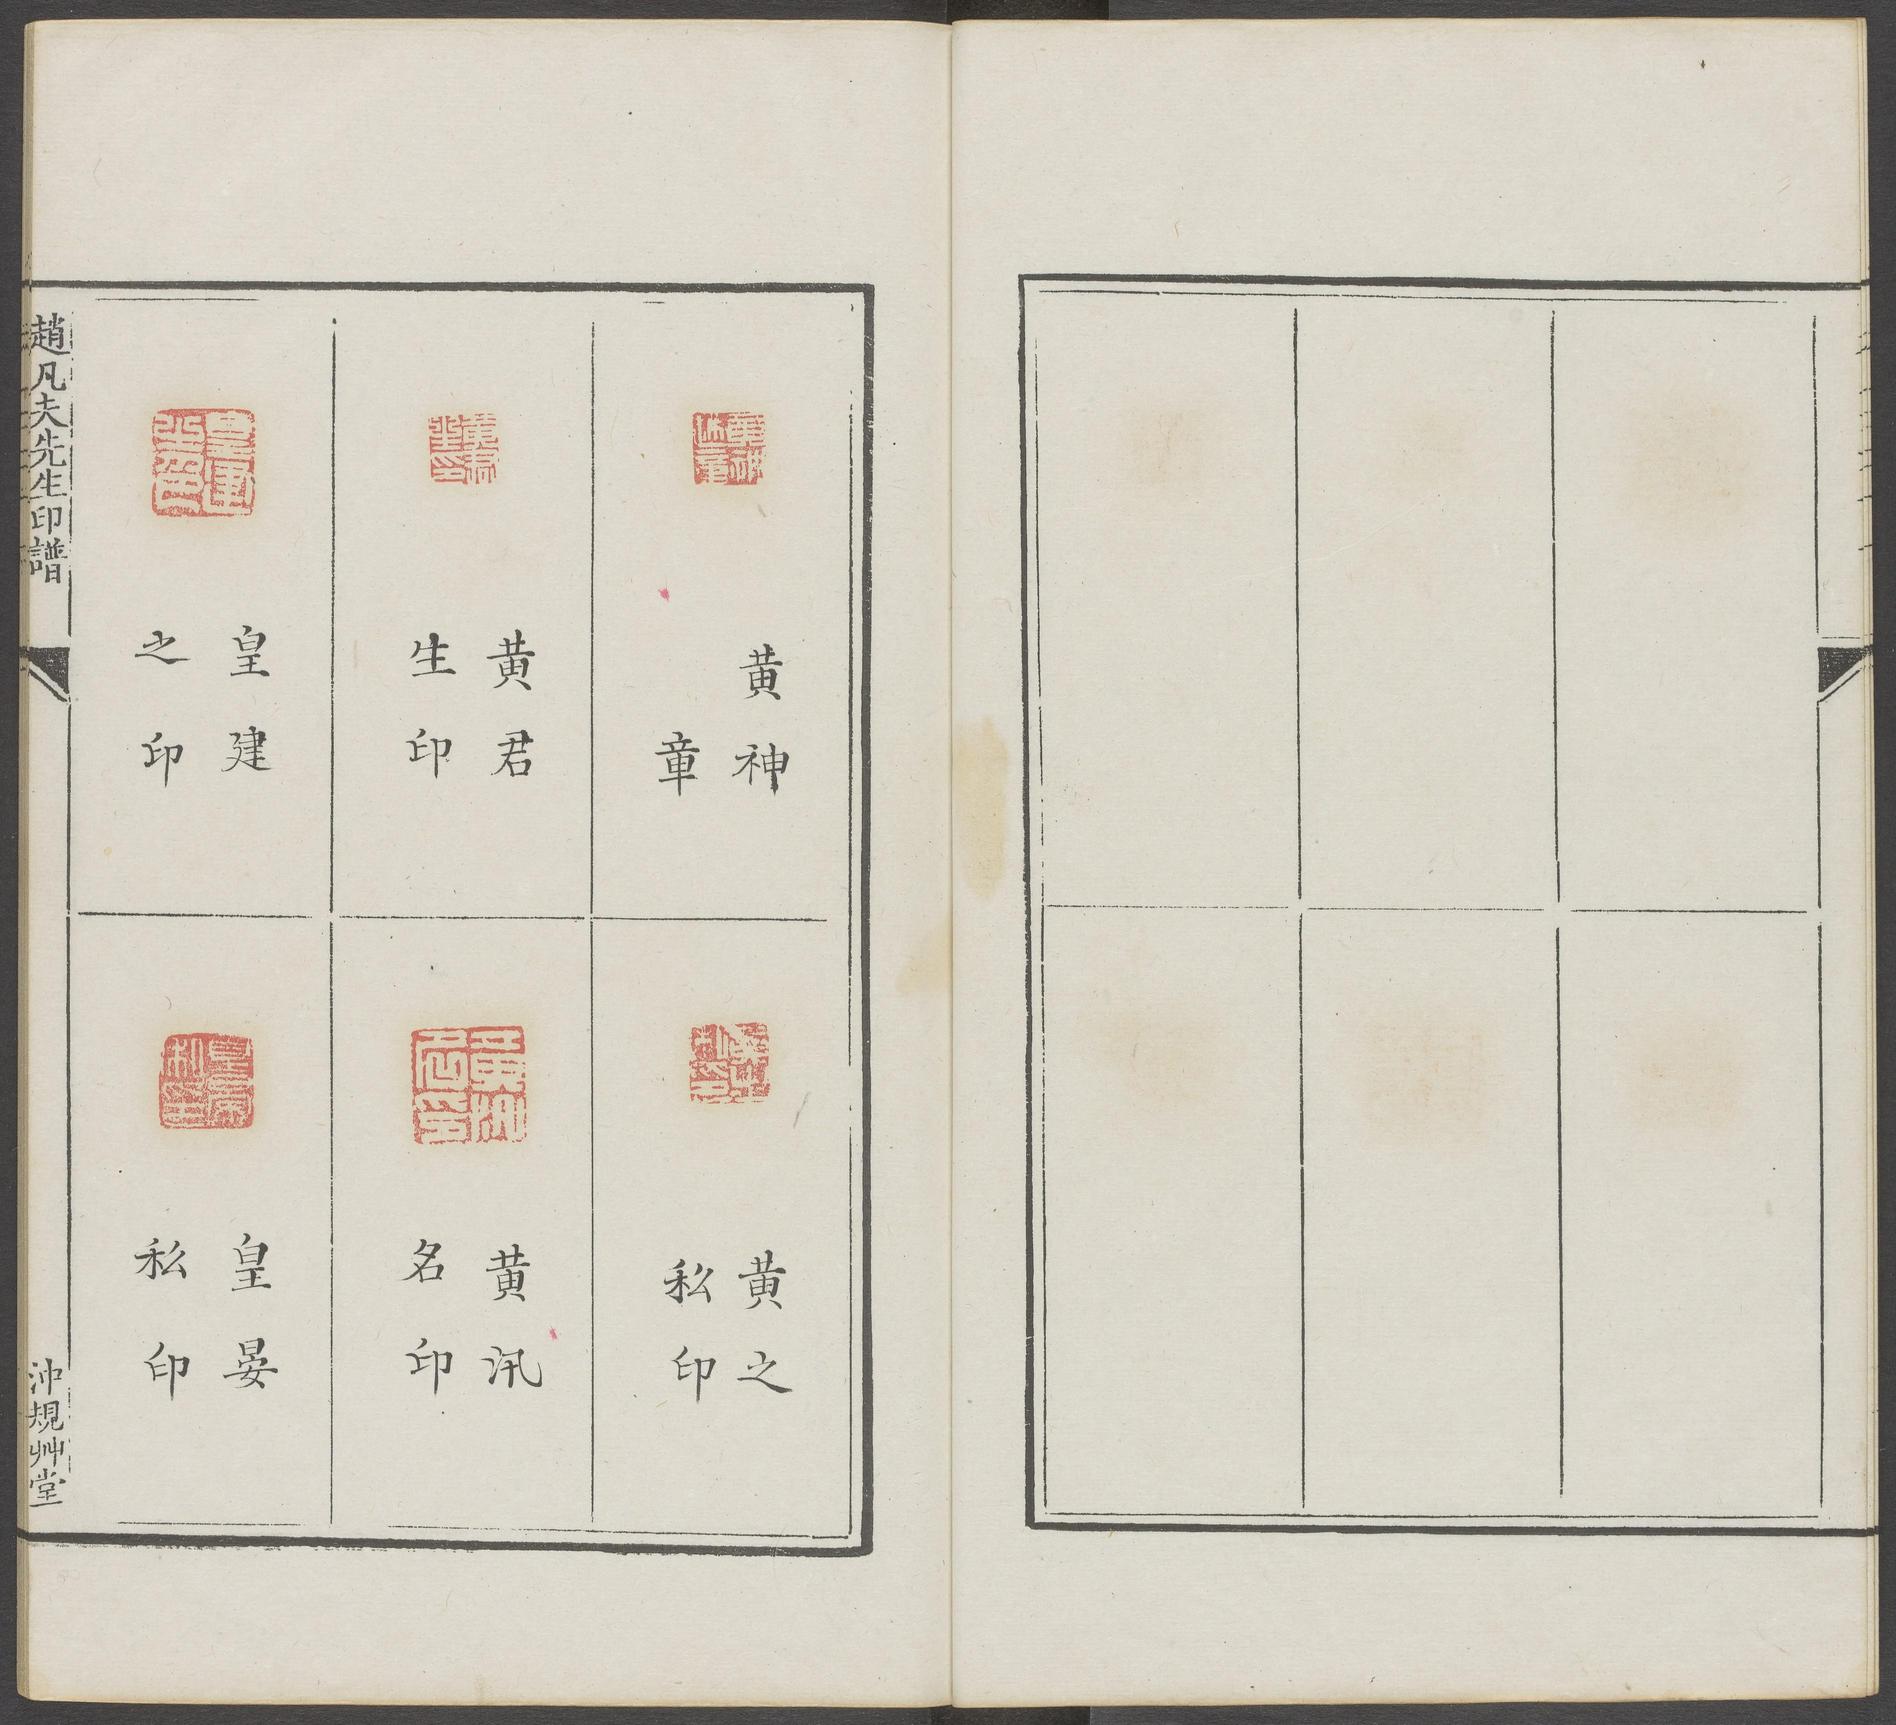 黄神
章
黄之
私印
黄君
生印
黄汛
名印
皇建
之印
皇晏
私印
趙凡夫先生印譜
沖規艸堂